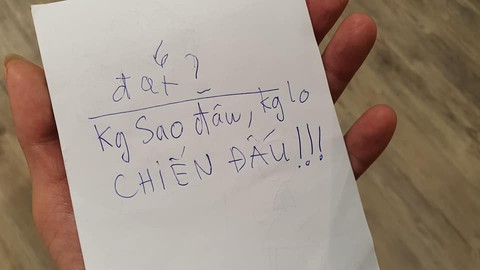 đắt ?
Kg Sao đâu, kg lo
CHIẾN ĐẤU!!!